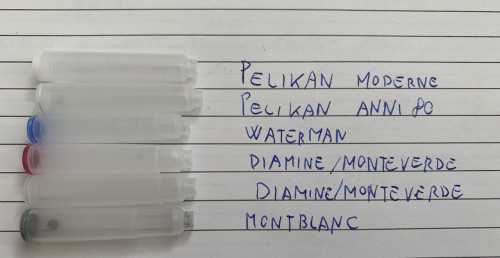 PELIKAN MODERNE
PELIKAN ANNI 80
WATERMAN
DIAMINE/MONTEVERDE
DIAMINE/MONTEVERDE
MONTBLANC